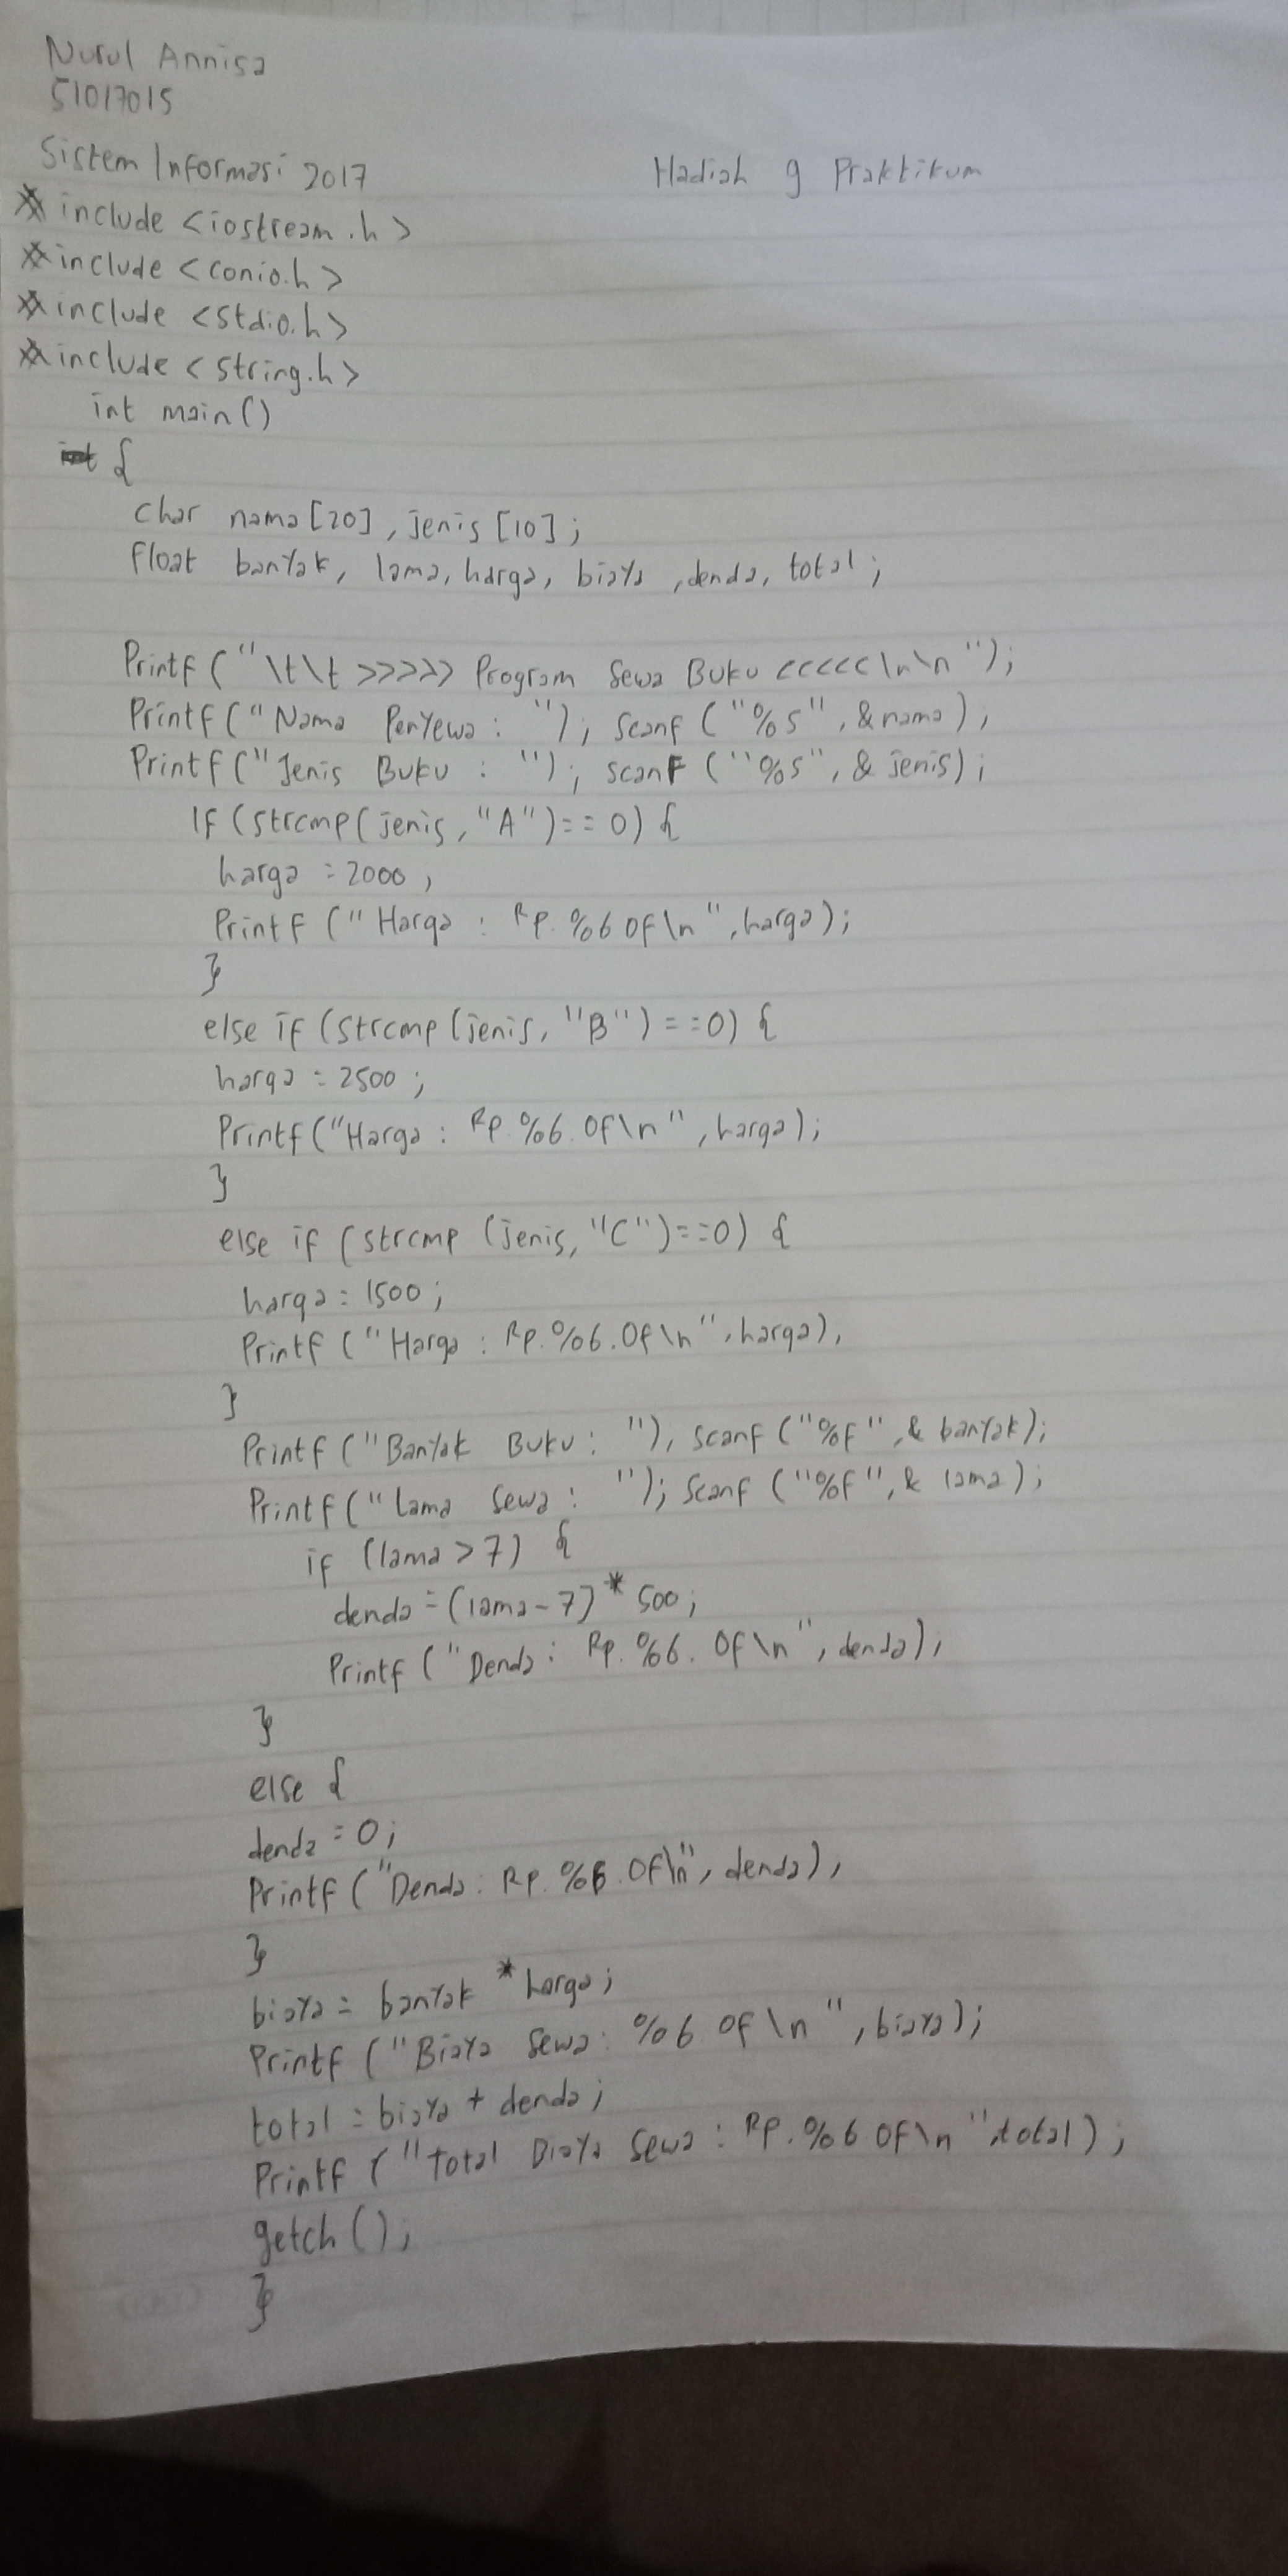 Nurul Annisa
51017015
Sistem Informasi 2017
Hadiah 9 Praktikum
# include <iostream.h>
# include <conio.h>
# include <stdio.h>
# include <string.h>
int main()
{
char nama[20], jenis [10];
float banyak, lama, harga, biaya, denda, total;
Printf ("\t\t >>>>> Program Sewa Buku <<<<< \n\n");
Printf ("Nama Penyewa : "); scanf ("%s", &nama);
Printf ("Jenis Buku : "); scanf ("%s", & jenis);
If (strcmp(jenis, "A")==0) {
harga = 2000;
Printf ("Harga : Rp. %6 0f\n", harga);
}
else if (strcmp (jenis, "B") ==0) {
harga = 2500;
Printf ("Harga : Rp. %6. 0f\n", harga);
}
else if (strcmp (jenis, "C")==0) {
harga = 1500;
Printf ("Harga : Rp. %6. 0f\n", harga),
}
Printf ("Banyak Buku : "), scanf ("%f", & banyak);
Printf ("Lama Sewa : "); scanf ("%f", & lama);
if (lama > 7) {
denda = (lama-7) * 500;
Printf ("Denda : Rp. %6. 0f \n", denda),
}
else {
denda = 0;
Printf ("Denda : Rp. %6. 0f\n", denda),
}
biaya = banyak * harga;
Printf ("Biaya Sewa : %6 0f \n", biaya);
total = biaya + denda;
Printf ("Total Biaya Sewa : Rp. %6 0f\n", total);
getch ();
}